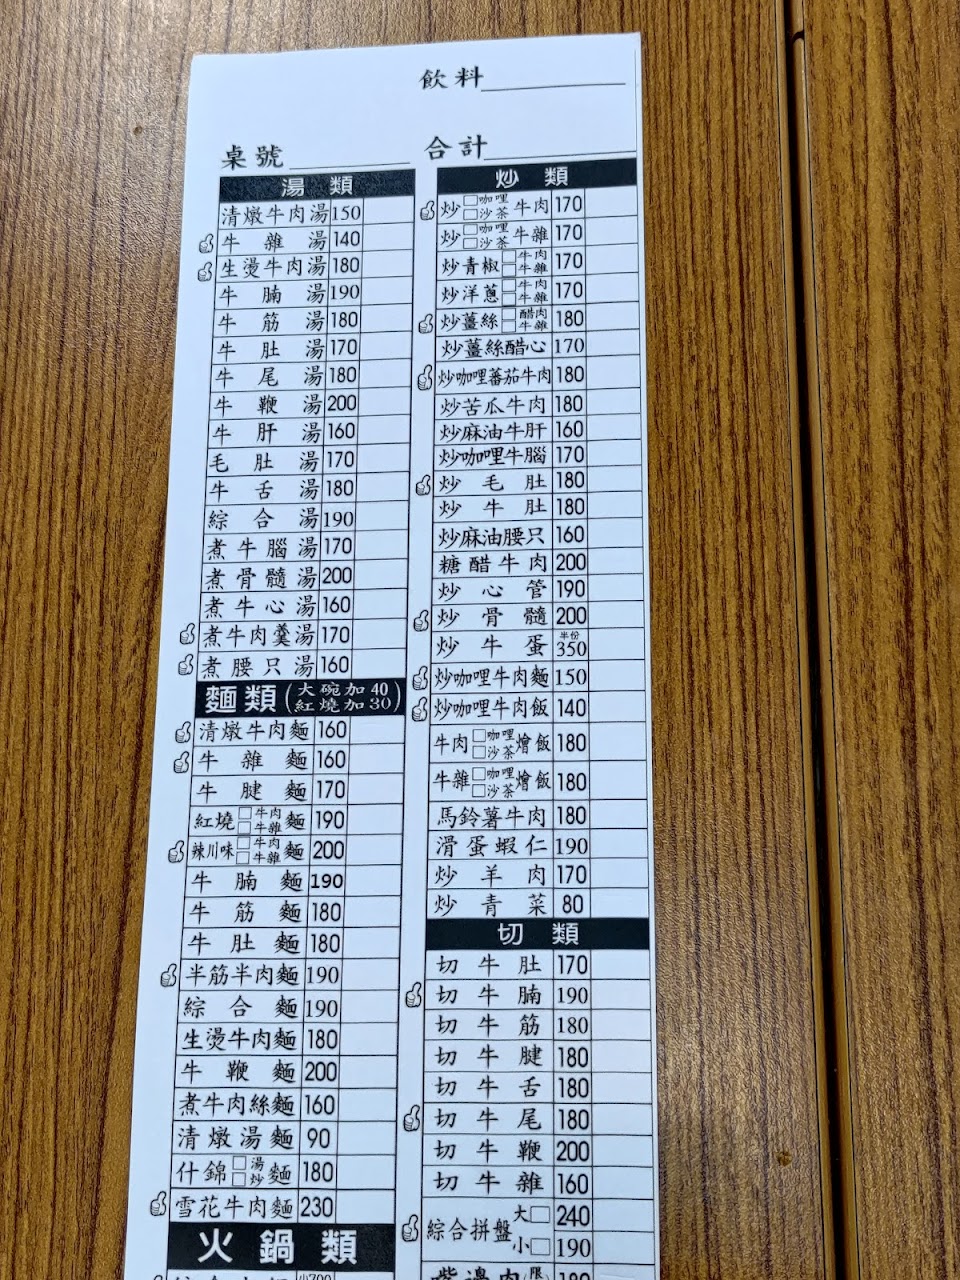 飲料
桌號
合計
湯類
清燉牛肉湯 150
牛雜湯 140
生燙牛肉湯 180
牛腩湯 190
牛筋湯 180
牛肚湯 170
牛尾湯 180
牛鞭湯 200
牛肝湯 160
毛肚湯 170
牛舌湯 180
綜合湯 190
煮牛腦湯 170
煮骨髓湯 200
煮牛心湯 160
煮牛肉羹湯 170
煮腰只湯 160
麵類(大碗加40 紅燒加30)
清燉牛肉麵 160
牛雜麵 160
牛腱麵 170
紅燒□牛肉□牛雜麵 190
辣川味□牛肉□牛雜麵 200
牛腩麵 190
牛筋麵 180
牛肚麵 180
半筋半肉麵 190
綜合麵 190
生燙牛肉麵 180
牛鞭麵 200
煮牛肉絲麵 160
清燉湯麵 90
什錦□湯□炒麵 180
雪花牛肉麵 230
火鍋類
炒類
炒□咖哩□沙茶牛肉 170
炒□咖哩□沙茶牛雜 170
炒青椒□牛肉□牛雜 170
炒洋蔥□牛肉□牛雜 170
炒薑絲□醋肉□牛雜 180
炒薑絲醋心 170
炒咖哩蕃茄牛肉 180
炒苦瓜牛肉 180
炒麻油牛肝 160
炒咖哩牛腦 170
炒毛肚 180
炒牛肚 180
炒麻油腰只 160
糖醋牛肉 200
炒心管 190
炒骨髓 200
炒牛蛋 半份350
炒咖哩牛肉麵 150
炒咖哩牛肉飯 140
牛肉□咖哩□沙茶燴飯 180
牛雜□咖哩□沙茶燴飯 180
馬鈴薯牛肉 180
滑蛋蝦仁 190
炒羊肉 170
炒青菜 80
切類
切牛肚 170
切牛腩 190
切牛筋 180
切牛腱 180
切牛舌 180
切牛尾 180
切牛鞭 200
切牛雜 160
綜合拼盤 大□ 240
小□ 190
嘴邊肉